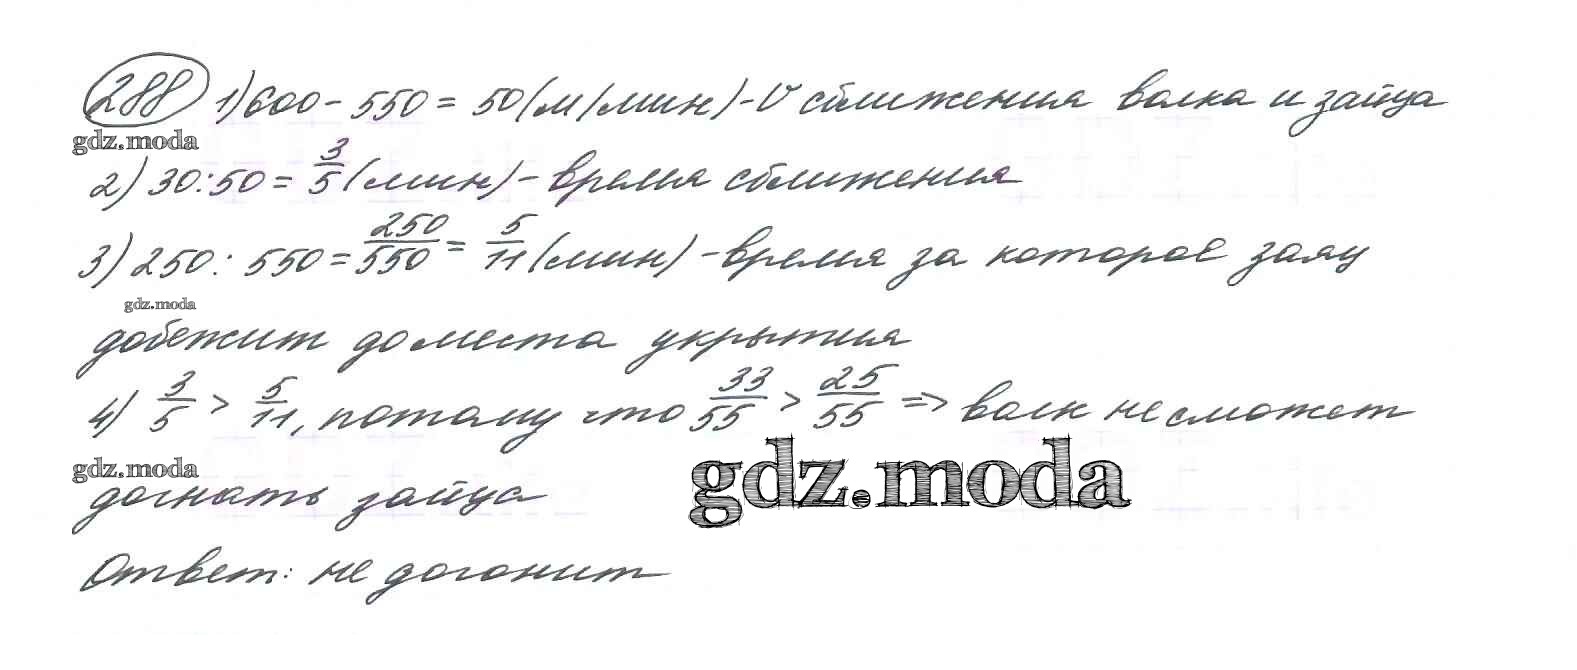 288 1) 600 - 550 = 50 (м/мин) - V сближения волка и зайца
gdz.moda
2) 30 : 50 = 3/5 (мин) - время сближения
3) 250 : 550 = 250/550 = 5/11 (мин) - время за которое заяц
gdz.moda
добежит до места укрытия
4) 3/5 > 5/11, потому что 33/55 > 25/55 => волк не сможет
gdz.moda
gdz.moda
догнать зайца
Ответ: не догонит